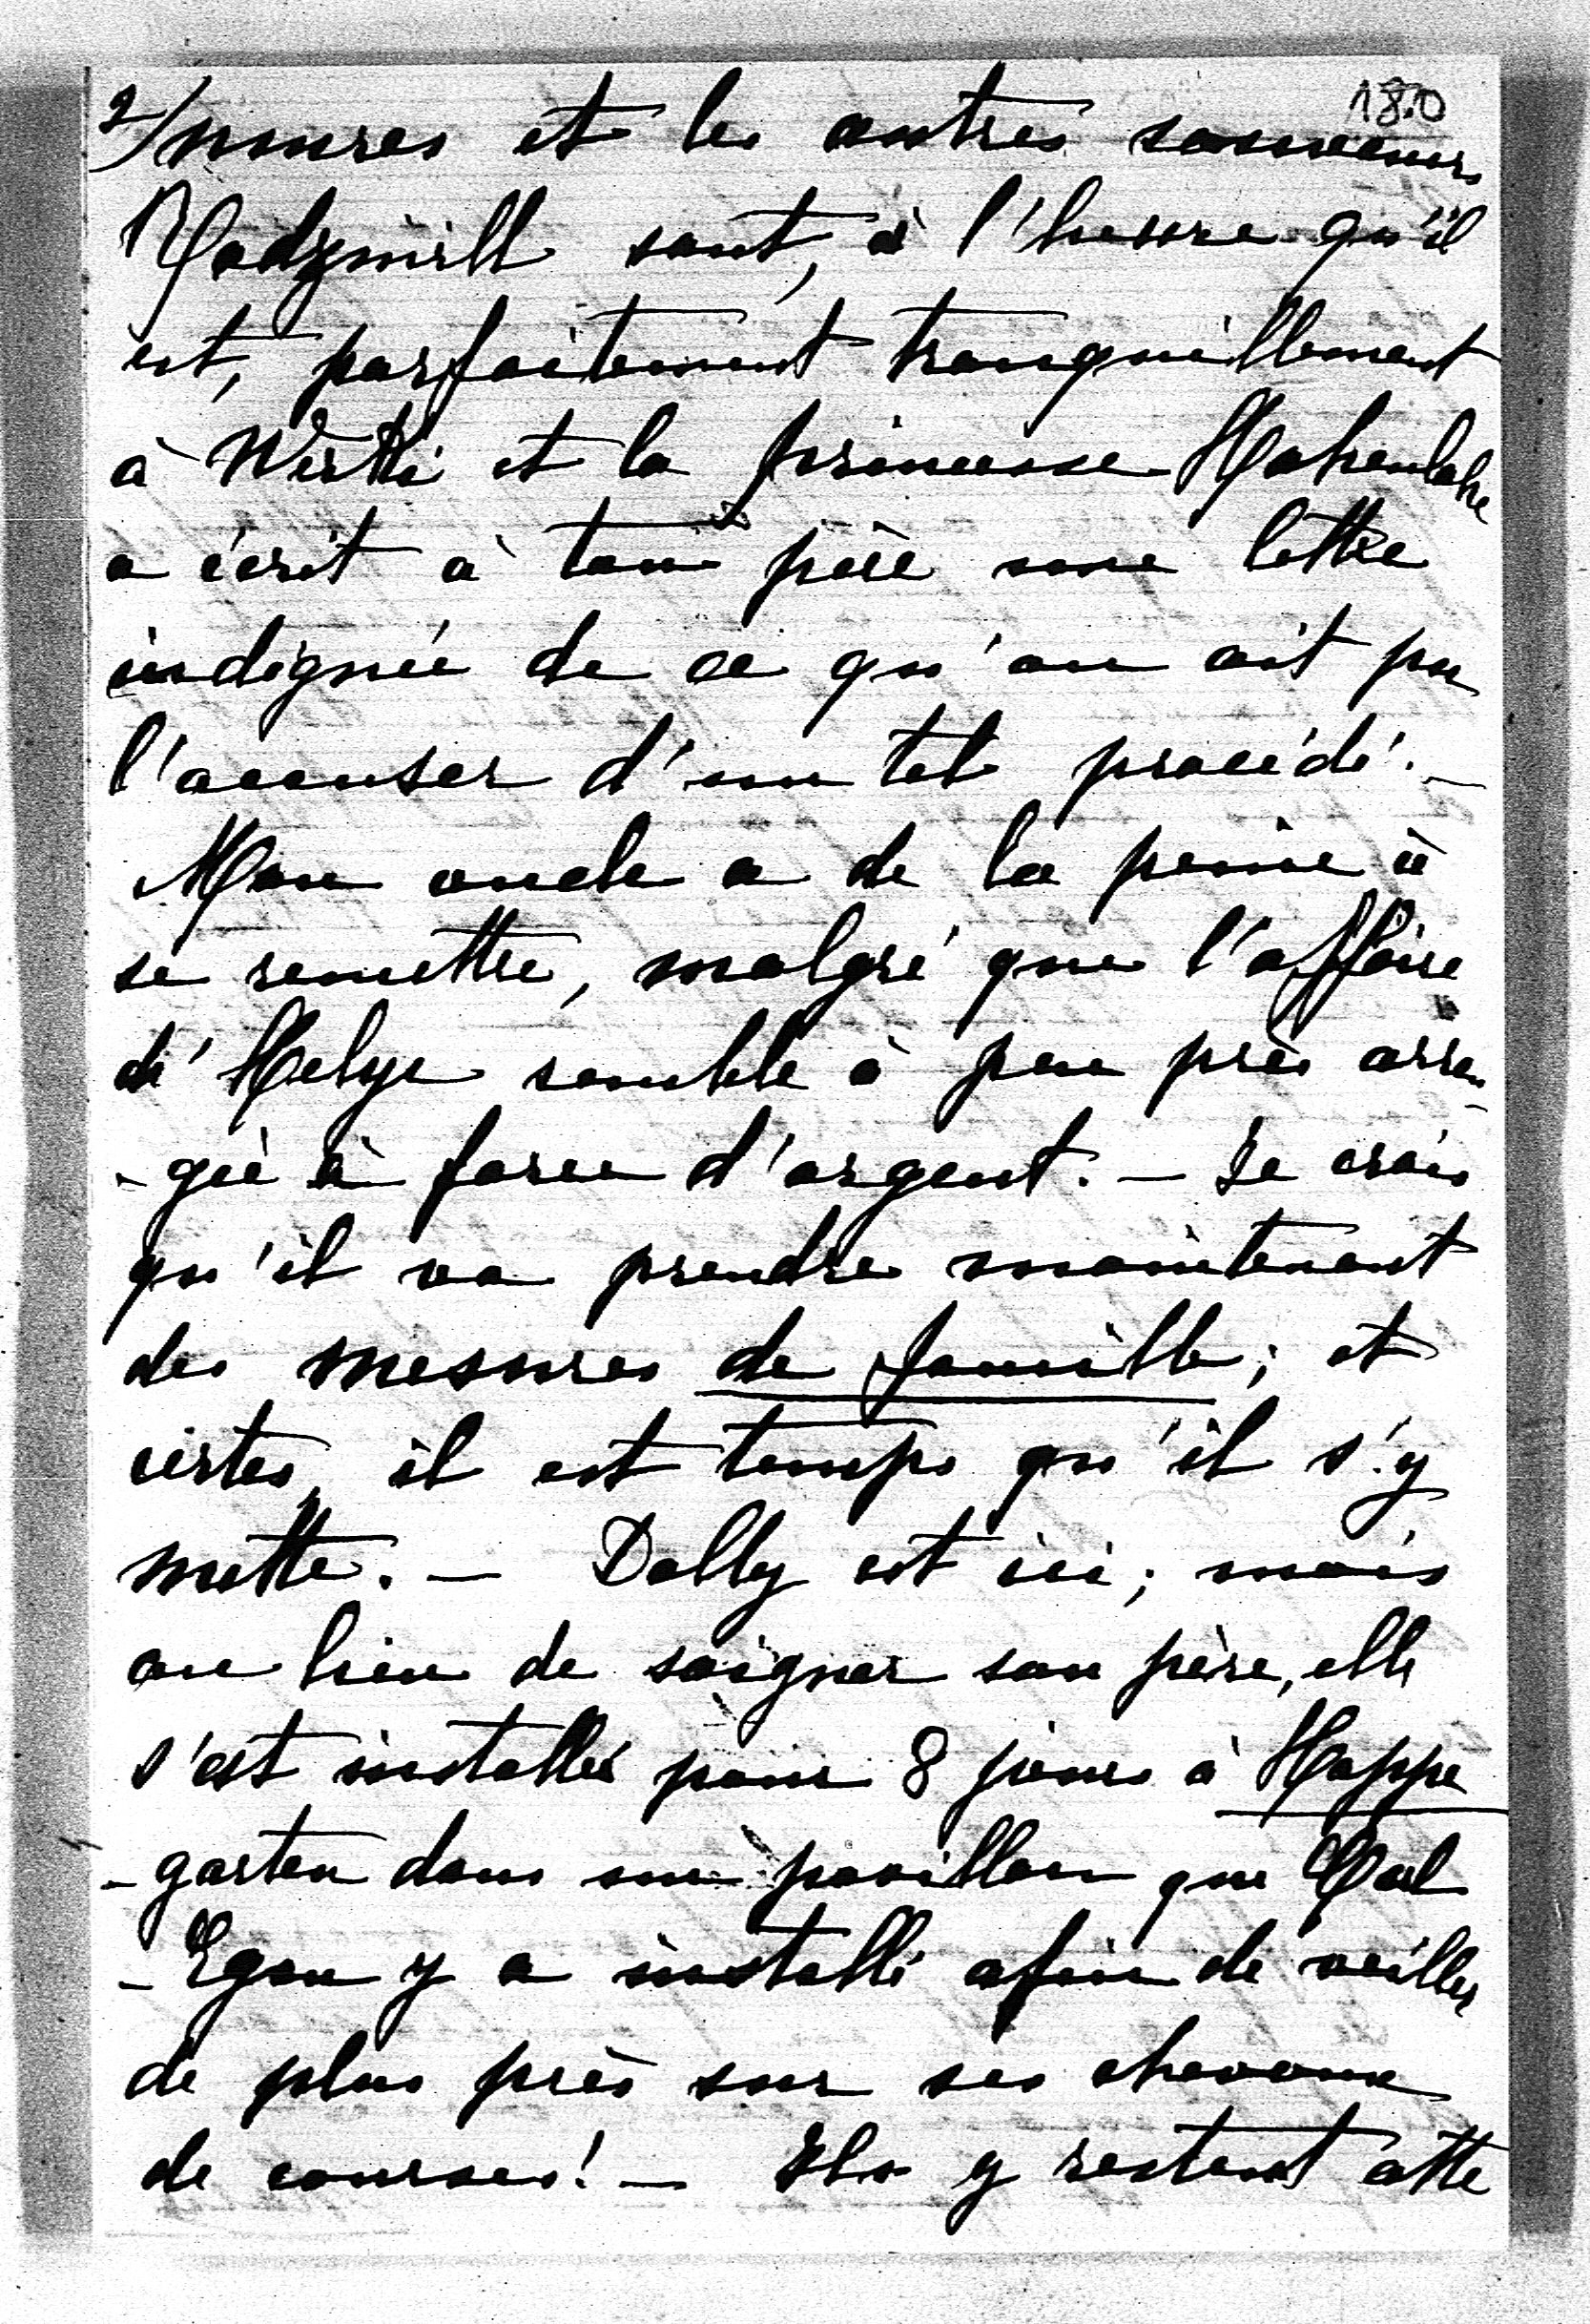 2/ mures et les autres souvenirs
180
Radziwill sont, à l'heure qu'il
est, parfaitement tranquillement
à Werki et la princesse Hohenlohe
a écrit à ton père une lettre
indignée de ce qu'on ait pu
l'accuser d'un tel procédé. —
Mon oncle a de la peine à
se remettre, malgré que l'affaire
d'Helye semble à peu près arran
-gée à force d'argent. — Je crois
qu'il va prendre maintenant
des mesures de famille; et
certes, il est temps qu'il s'y
mette. — Dolly est ici; mais
au lieu de soigner son père, elle
s'est installée pour 8 jours à Hoppe
-garten dans un pavillon que Carl
-Egon y a installé afin de veiller
de plus près sur ses chevaux
de courses! — Ils y restent cette